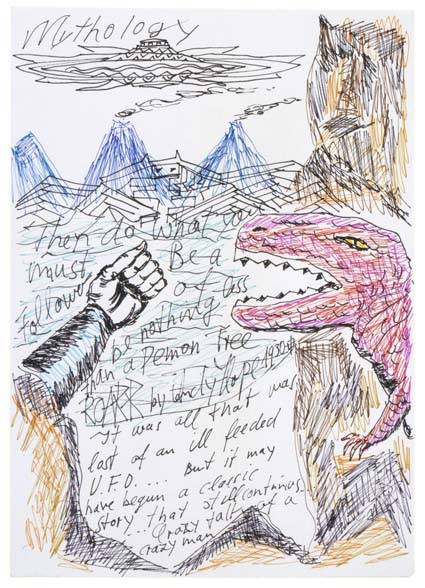 Mythology
Then do What
must Be a
Follower of
be nothing
than a Demon Tree
by lonely Hope
It was all that was
last of an ill feeded
U.F.O..... But it may
have begun a classic
story that still continues.
... Crazy talk of a
crazy man